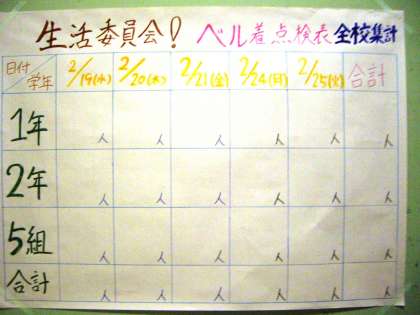 生活委員会! ベル着点検表 全校集計
日付 学年 2/19(水) 2/20(木) 2/21(金) 2/24(月) 2/25(火) 合計
1年 人 人 人 人 人 人
2年 人 人 人 人 人 人
5組 人 人 人 人 人 人
合計 人 人 人 人 人 人